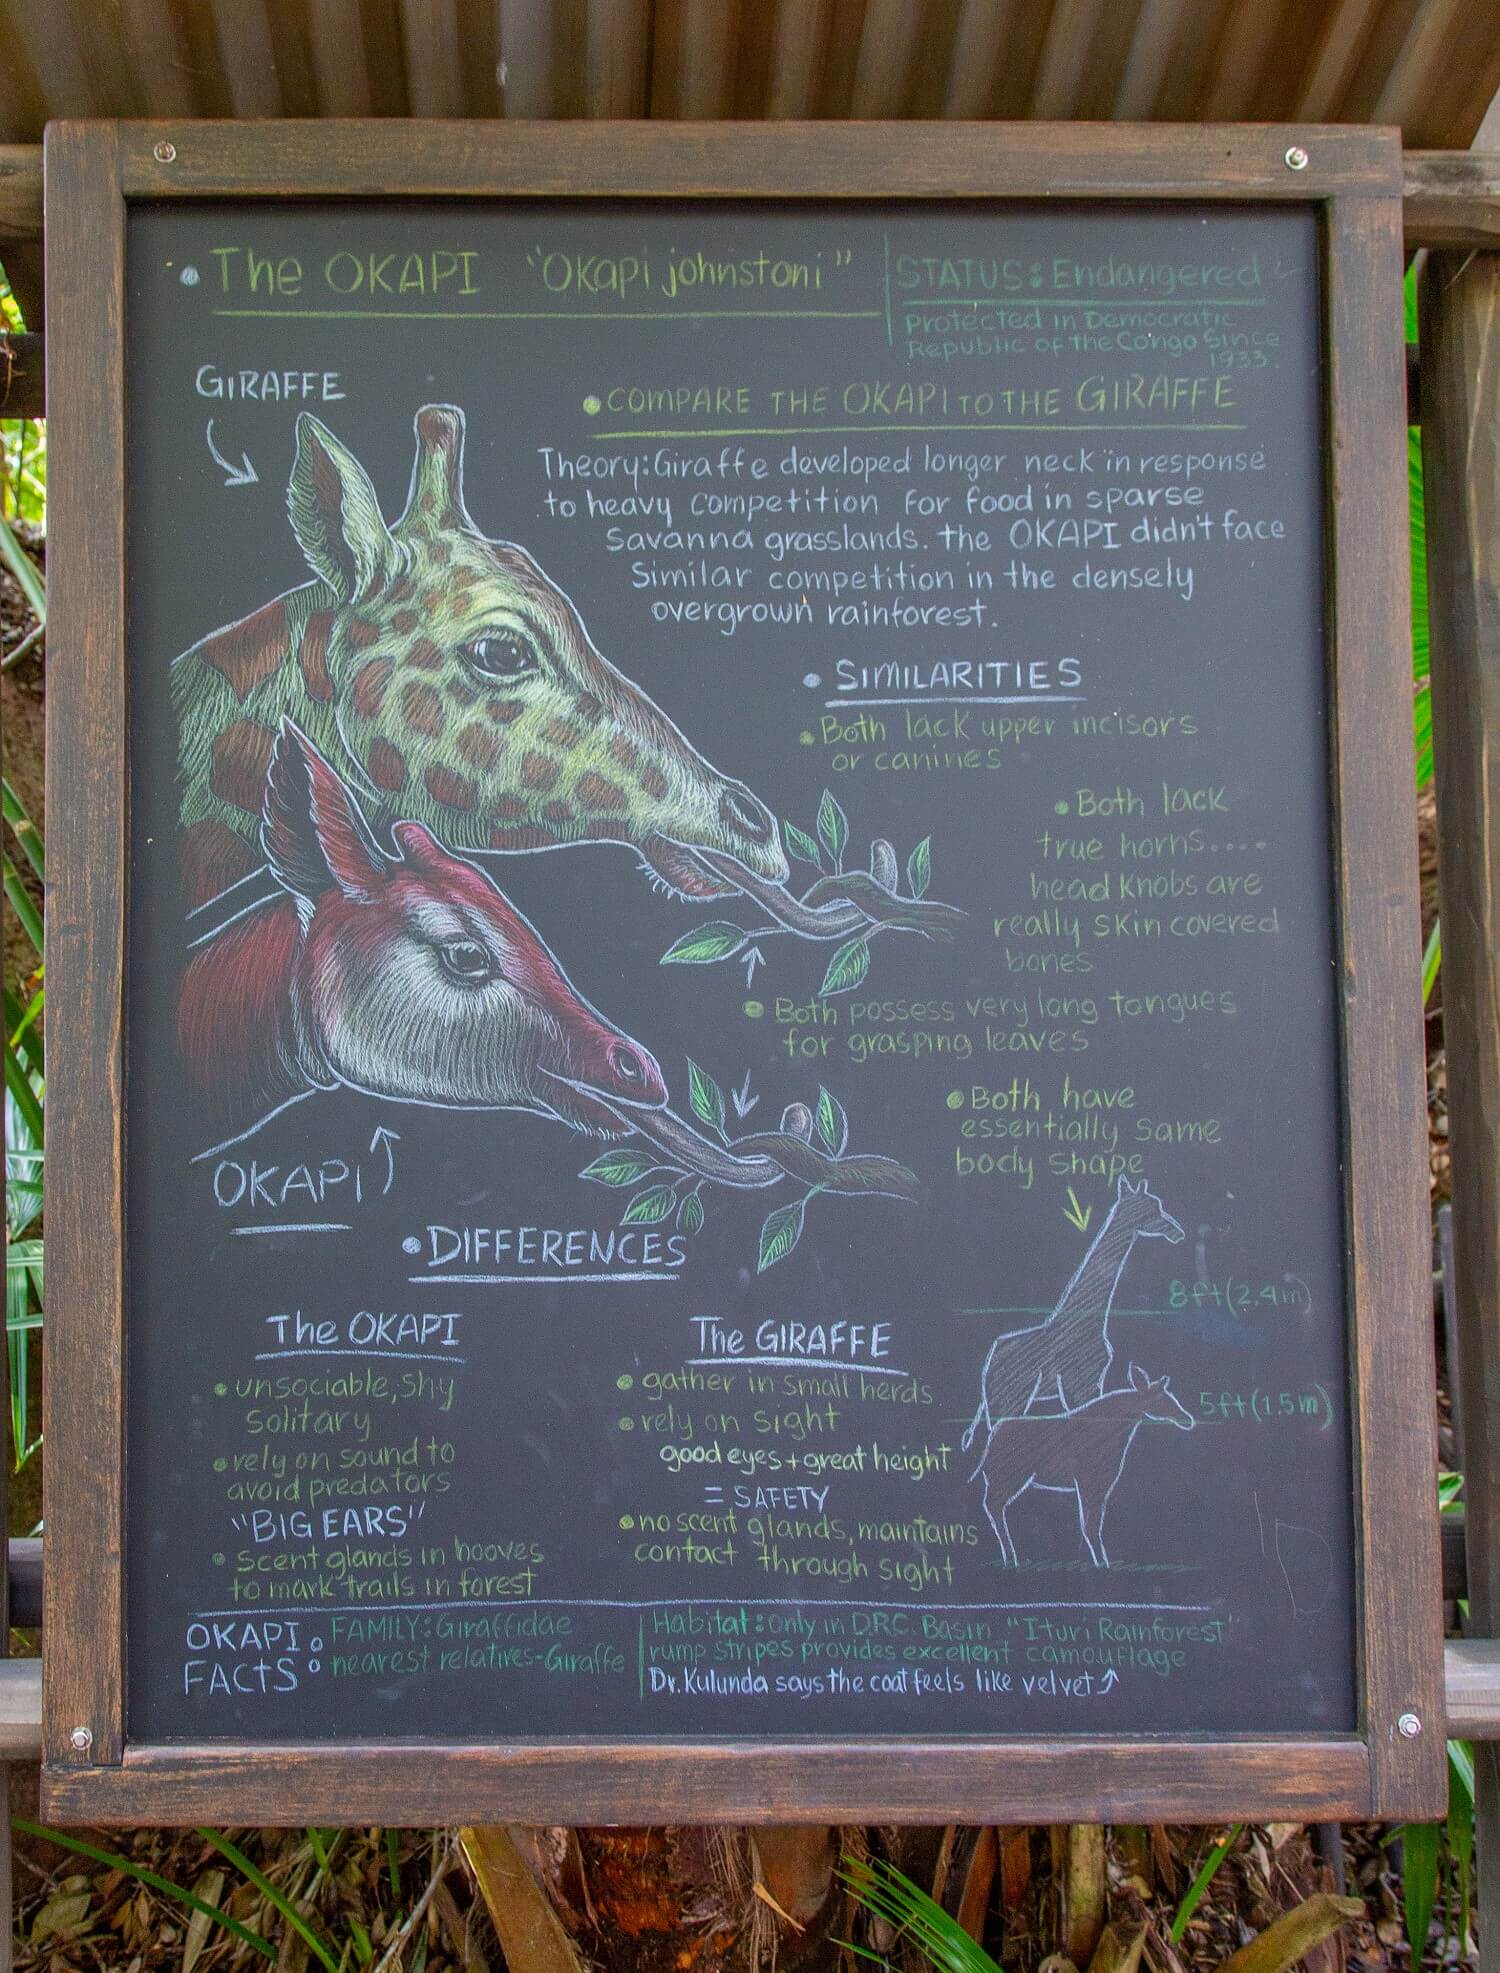 • The OKAPI "Okapi johnstoni"
STATUS: Endangered
protected in Democratic
Republic of the Congo Since
1933.
GIRAFFE
• COMPARE THE OKAPI TO THE GIRAFFE
Theory: Giraffe developed longer neck in response
to heavy competition for food in sparse
Savanna grasslands. the OKAPI didn't face
Similar competition in the densely
overgrown rainforest.
• SIMILARITIES
• Both lack upper incisors
or canines
• Both lack
true horns....
head knobs are
really skin covered
bones
• Both possess very long tongues
for grasping leaves
• Both have
essentially same
body shape
OKAPI
8ft (2.4m)
5ft (1.5m)
• DIFFERENCES
The OKAPI
• unsociable, shy
solitary
• rely on sound to
avoid predators
"BIG EARS"
• Scent glands in hooves
to mark trails in forest
The GIRAFFE
• gather in small herds
• rely on sight
good eyes + great height
= SAFETY
• no scent glands, maintains
contact through sight
OKAPI
FACTS:
FAMILY: Giraffidae
nearest relatives-Giraffe
Habitat: only in D.R.C. Basin "Ituri Rainforest"
rump stripes provides excellent camouflage
Dr. Kulunda says the coat feels like velvet